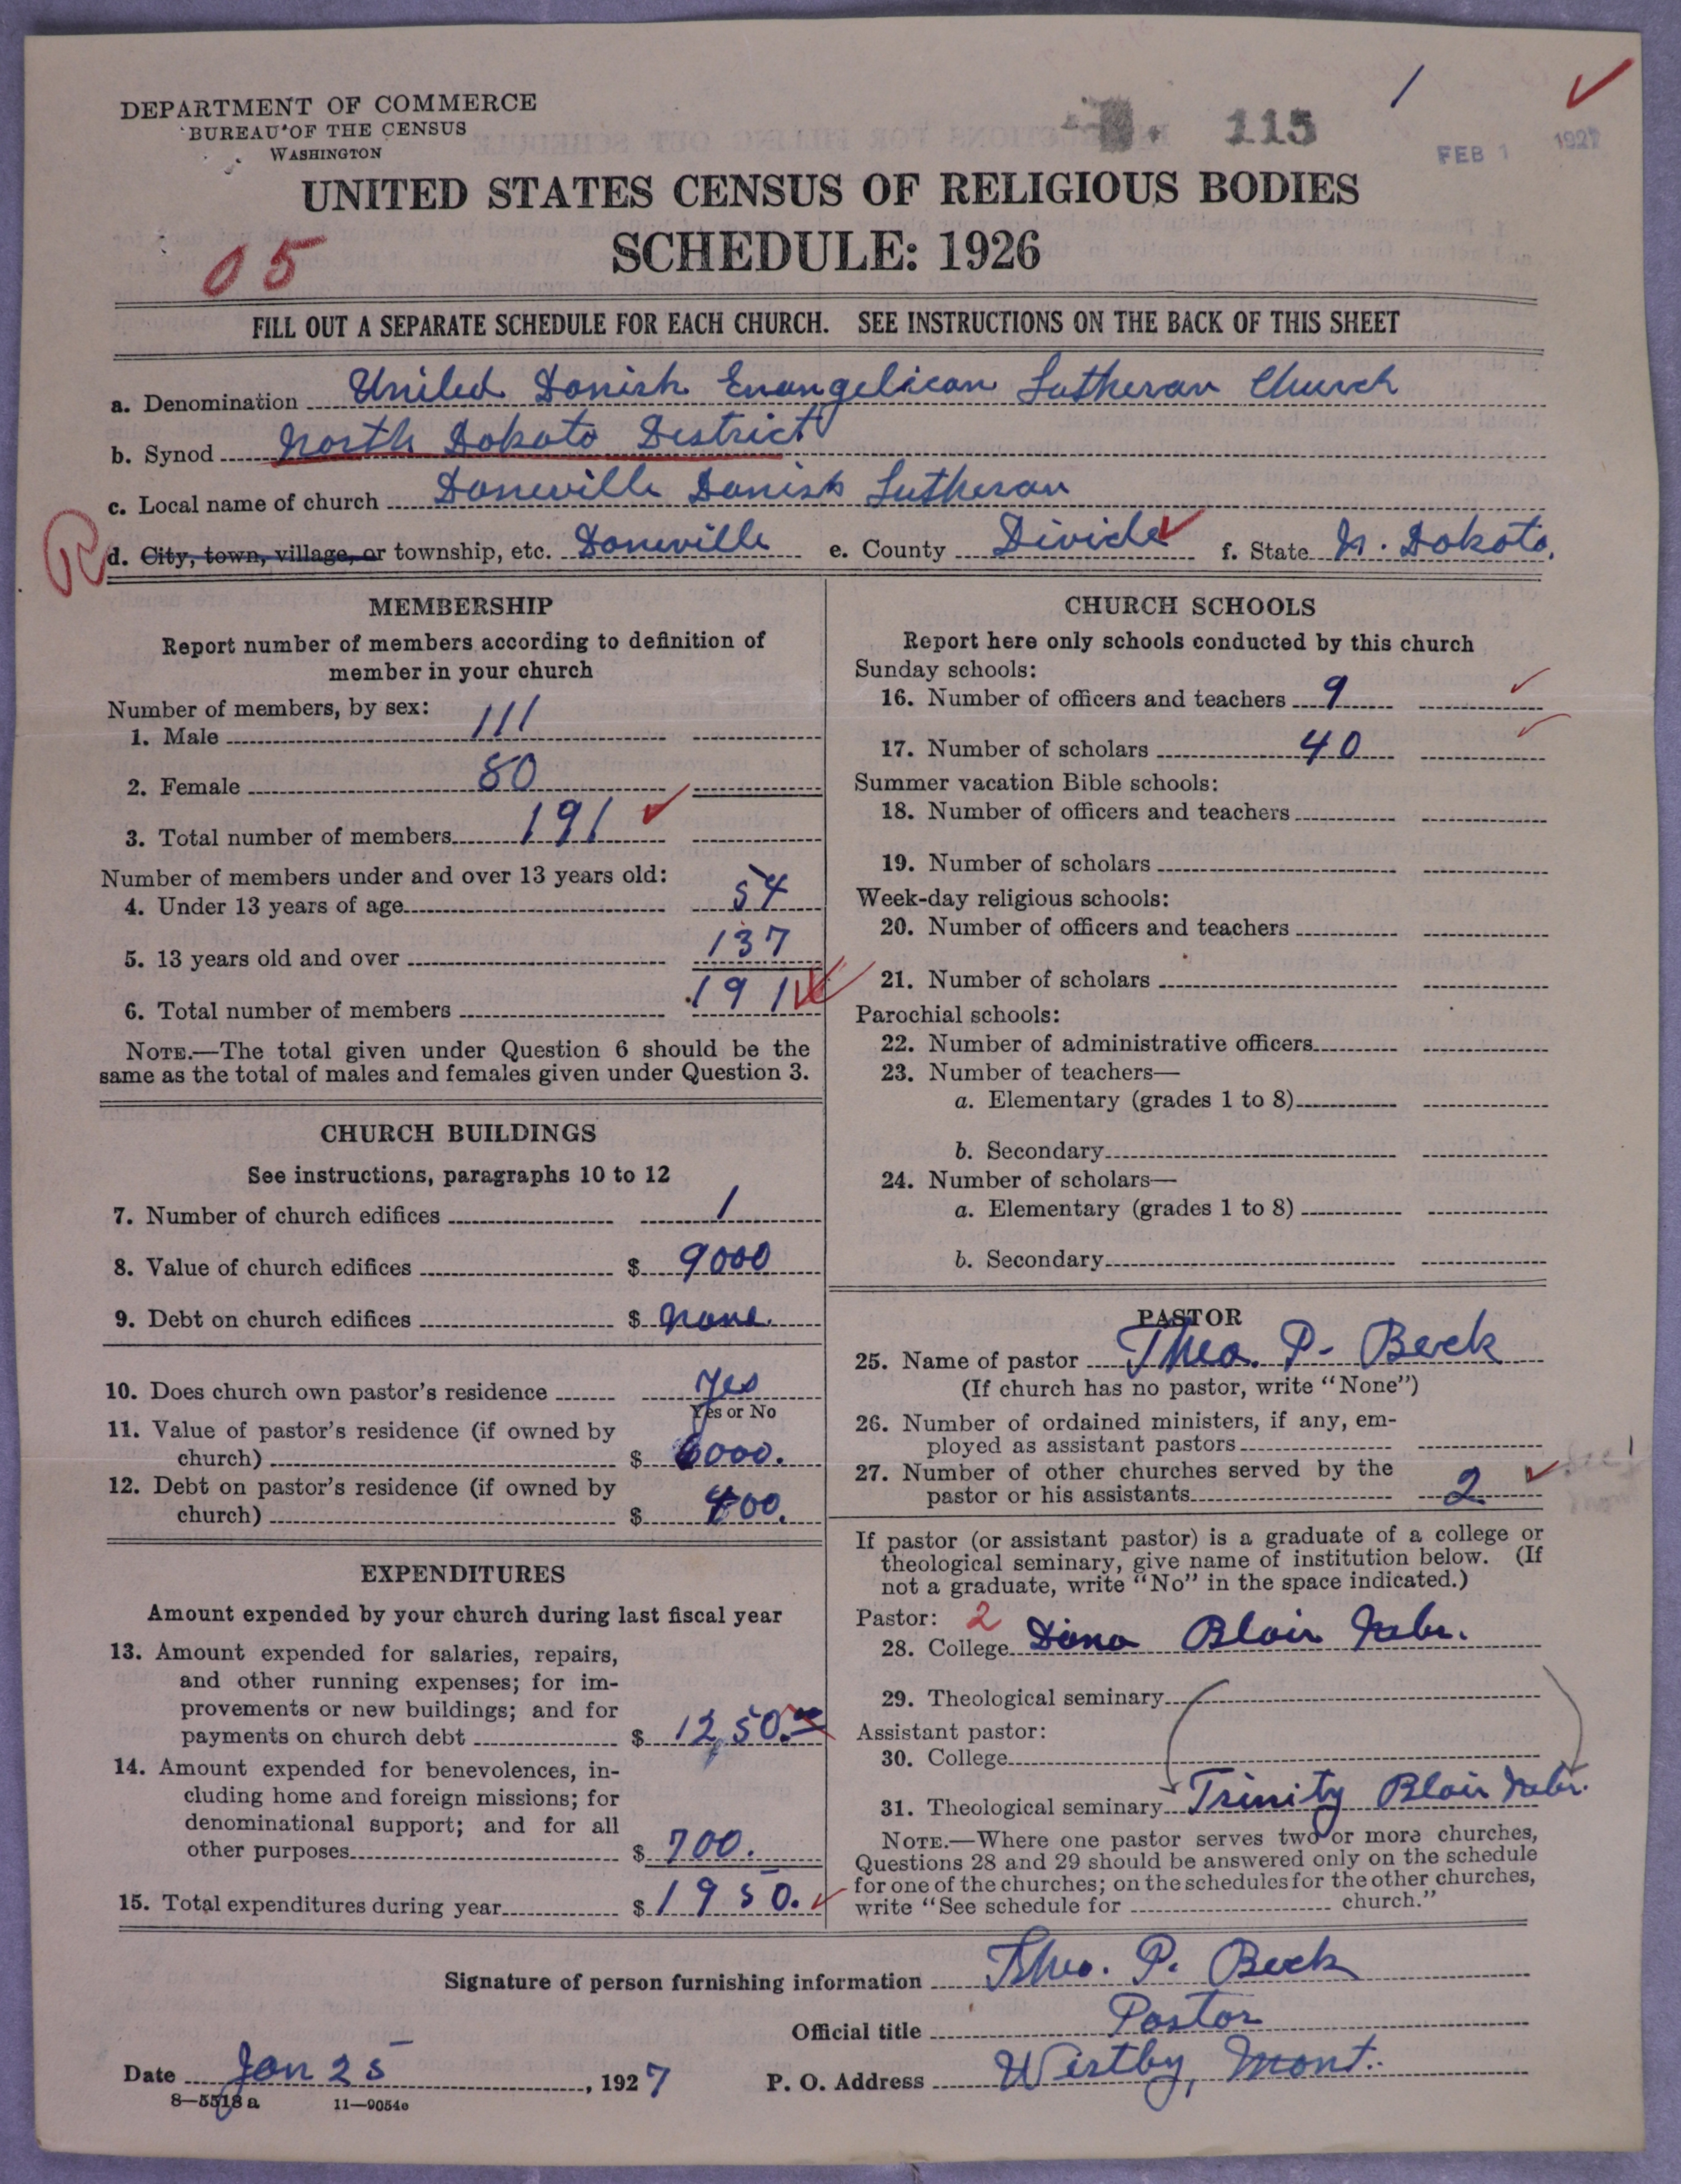 DEPARTMENT OF COMMERCE
BUREAU OF THE CENSUS
WASHINGTON
115
FEB 1 1927
UNITED STATES CENSUS OF RELIGIOUS BODIES
SCHEDULE: 1926
05
FILL OUT A SEPARATE SCHEDULE FOR EACH CHURCH. SEE INSTRUCTIONS ON THE BACK OF THIS SHEET
a. Denomination United Danish Evangelican Lutheran Church
b. Synod North Dakota District
c. Local name of church Daneville Danish Lutheran
R
d. City, town, village, or township, etc. Daneville e. County Divide f. State N. Dakota.
MEMBERSHIP
Report number of members according to definition of
member in your church
Number of members, by sex:
1. Male 111
2. Female 80
3. Total number of members 191
Number of members under and over 13 years old:
4. Under 13 years of age 54
5. 13 years old and over 137
6. Total number of members 191
NOTE.—The total given under Question 6 should be the
same as the total of males and females given under Question 3.
CHURCH BUILDINGS
See instructions, paragraphs 10 to 12
7. Number of church edifices 1
8. Value of church edifices $ 9000
9. Debt on church edifices $ none.
10. Does church own pastor's residence Yes
Yes or No
11. Value of pastor's residence (if owned by
church) $ 6000.
12. Debt on pastor's residence (if owned by
church) $ 400.
EXPENDITURES
Amount expended by your church during last fiscal year
13. Amount expended for salaries, repairs,
and other running expenses; for im-
provements or new buildings; and for
payments on church debt $ 1250.00
14. Amount expended for benevolences, in-
cluding home and foreign missions; for
denominational support; and for all
other purposes $ 700.
15. Total expenditures during year $ 1950.
CHURCH SCHOOLS
Report here only schools conducted by this church
Sunday schools:
16. Number of officers and teachers 9
17. Number of scholars 40
Summer vacation Bible schools:
18. Number of officers and teachers
19. Number of scholars
Week-day religious schools:
20. Number of officers and teachers
21. Number of scholars
Parochial schools:
22. Number of administrative officers
23. Number of teachers—
a. Elementary (grades 1 to 8)
b. Secondary
24. Number of scholars—
a. Elementary (grades 1 to 8)
b. Secondary
PASTOR
25. Name of pastor Theo. P. Beck
(If church has no pastor, write "None")
26. Number of ordained ministers, if any, em-
ployed as assistant pastors
27. Number of other churches served by the
pastor or his assistants 2
If pastor (or assistant pastor) is a graduate of a college or
theological seminary, give name of institution below. (If
not a graduate, write "No" in the space indicated.)
Pastor: 2
28. College Dana Blair Nebr.
29. Theological seminary
Assistant pastor:
30. College
31. Theological seminary Trinity Blair Nebr.
NOTE.—Where one pastor serves two or more churches,
Questions 28 and 29 should be answered only on the schedule
for one of the churches; on the schedules for the other churches,
write "See schedule for church."
Signature of person furnishing information Theo. P. Beck
Official title Pastor
Date Jan 25, 1927 P. O. Address Westby, Mont.
8—5518 a 11—9054e